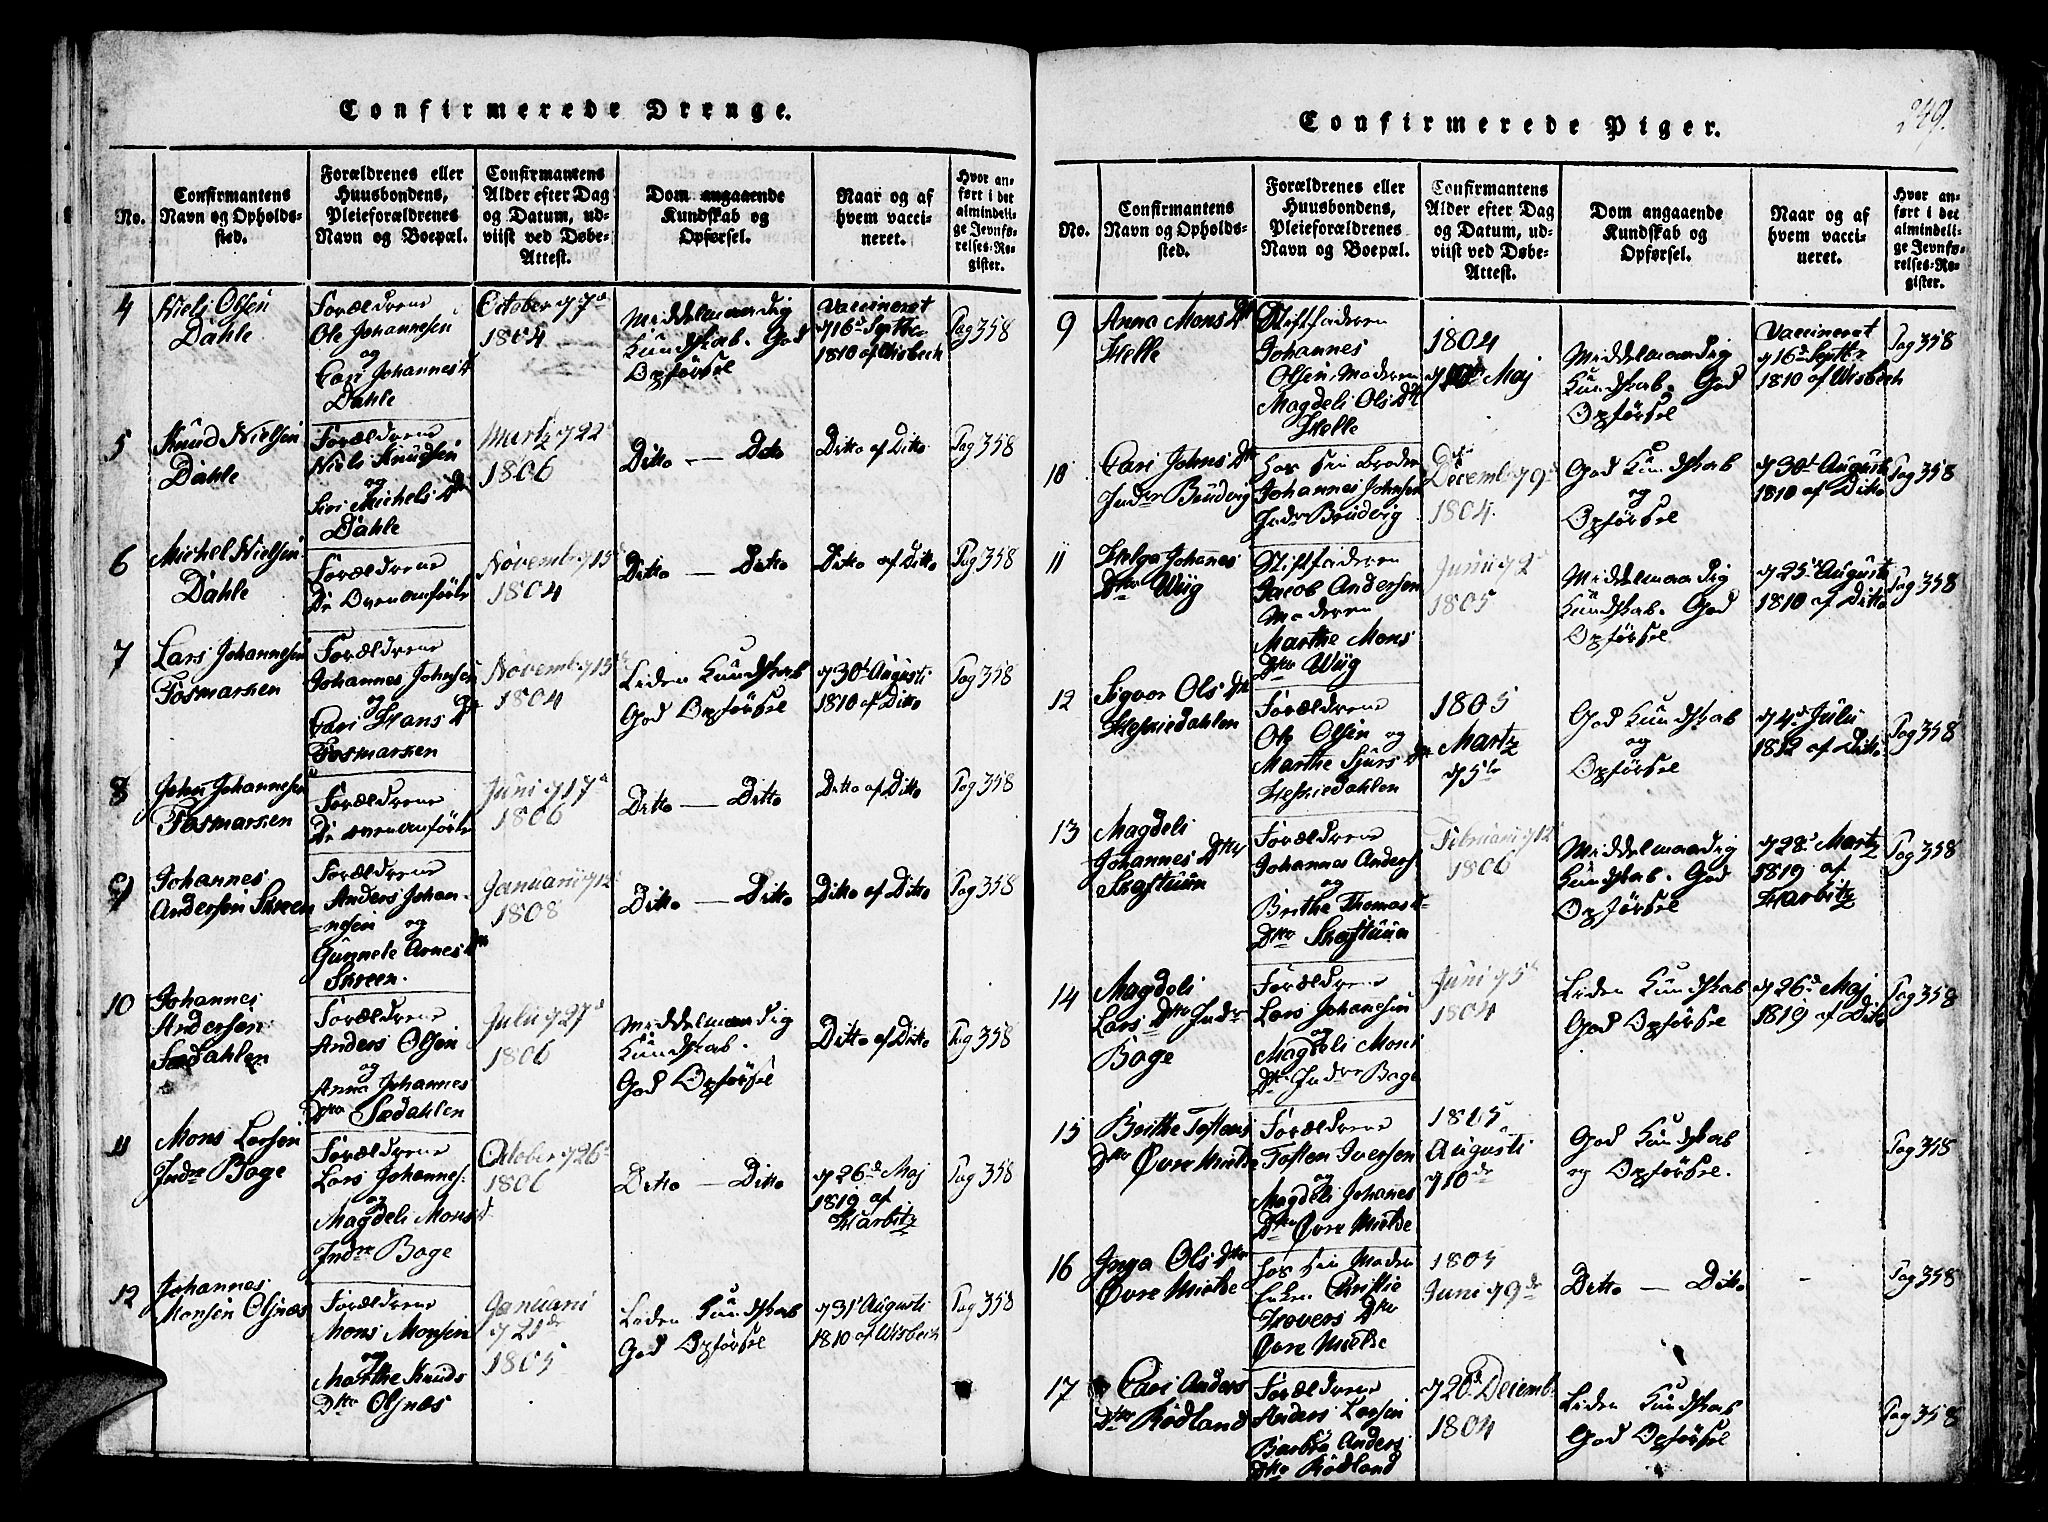 Confirmerede Drenge.
No.
Confirmantens
Navn og Opholds-
sted.
Forældrenes eller
Huusbondens,
Pleieforældrenes
Navn og Boepæl.
Confirmantens
Alder efter Dag
og Datum, ud-
viist ved Døbe-
Attest.
Dom angaaende
Kundskab og
Opførsel.
Naar og af
hvem vacci-
neret.
Hvor an-
ført i det
almindeli-
ge Jevnfø-
relses-Re-
gister.
4
Niels Olsen
Dahle
Forældrene
Ole Johannesen
og
Cari Johannes
Dahle
October 7
1804
Middelmaadig
Kundskab. God
Opførsel
Vaccineret
16 Septbr
1810 af Wisbech
Pag 358
5
Knud Nielsen
Dahle
Forældrene
Niels Knudsen
og
Siri Michels Dtr
Dahle
Martz 22
1806
Ditto — Ditto
Ditto af Ditto
Pag 358
6
Michel Nielsen
Dahle
Forældrene
De Ovenanførte
Novemb 15
1804
Ditto — Ditto
Ditto af Ditto
Pag 358
7
Lars Johannesen
Fosmarken
Forældrene
Johannes Johnsen
og
Cari Hans Dtr
Fosmarken
Novemb 15
1804
Liden Kundskab
God Opførsel
30 Augusti
1810 af Ditto
Pag 358
8
John Johannesen
Fosmarken
Forældrene
De ovenanførte
Juni 17
1806
Ditto — Ditto
Ditto af Ditto
Pag 358
9
Johannes
Andersen Skreen
Forældrene
Anders Johan-
nesen og
Gunnele Arnes Dtr
Skreen.
Januarii 12
1808
Ditto — Ditto
Ditto af Ditto
Pag 358
10
Johannes
Andersen
Sædahlen
Forældrene
Anders Olsen
og
Anna Johannes
Dtr Sædahlen
Julii 27
1806
Middelmaadig
Kundskab.
God Opførsel
Ditto af Ditto
Pag 358
11
Mons Larsen
Indre Boge
Forældrene
Lars Johannes.
og
Magdeli Mons
Indre Boge
October 26
1806
Ditto — Ditto
26 Maj
1819 af
Harbitz
Pag 358
12
Johannes
Monsen Olsnæs
Forældrene
Mons Monsen
og
Marthe Knuds
Dtr Olsnæs
Januarii
21
1805
Liden Kundskab
God Opførsel
31 Augusti
1810 af Wisbech
Pag 358
Confirmerede Piger.
249.
No.
Confirmantens
Navn og Opholds-
sted.
Forældrenes eller
Huusbondens,
Pleieforældrenes
Navn og Boepæl.
Confirmantens
Alder efter Dag
og Datum, ud-
viist ved Døbe-
Attest.
Dom angaaende
Kundskab og
Opførsel.
Naar og af
hvem vacci-
neret.
Hvor an-
ført i det
almindeli-
ge Jevnfø-
relses-Re-
gister.
9
Anna Mons Dtr
Helle
Stiffaderen
Johannes
Olsen, Moderen
Magdeli Ols Dtr
Helle
1804
Maj
Middelmaadig
Kundskab. God
Opførsel
Vaccineret
16 Septbr
1810 af Wisbech
Pag 358
10
Cari Johns Dtr
Indre Brudvig
hos sin Broder
Johannes Johnsen
Indre Brudvig
Decemb 9
1804.
God Kundskab
og
Opførsel
30 Augusti
1810 af Ditto
Pag 358
11
Helga Johannes
Dtr Wiig
Stiffaderen
Jacob Andersen
Moderen
Marthe Mons
Dtr Wiig
Junii 2
1805
Middelmaadig
Kundskab. God
Opførsel
25 Augusti
1810 af Ditto
Pag 358
12
Sigvor Ols Dtr
Hesiedahlen
Forældrene
Ole Olsen og
Marthe Sjurs Dtr
Hesiedahlen
1805
Martz
5te
God Kundskab
og
Opførsel
4 Julii
1812 af Ditto
Pag 358
13
Magdeli
Johannes Dtr
Skaftuun
Forældrene
Johannes Anders.
og
Brithe Thomas
Dtr Skaftuun
Februarii 12
1806
Middelmaadig
Kundskab. God
Opførsel
28 Martz
1819 af
Harbitz
Pag 358
14
Magdeli
Lars Dtr Indre
Boge
Forældrene
Lars Johannesen
og
Magdeli Mons
Dtr Indre Boge
Junii 5
1804
Liden Kundskab
God Opførsel
26 Maj
1819 af Ditto
Pag 358
15
Brithe Toftens
Dtr Øvre Mielde
Forældrene
Toften Iversen
og
Magdeli Johannes
Dtr Øvre Mielde
1805
Augusti
10de
God Kundskab
og Opførsel.
Pag 358
16
Inga Ols Dtr
Øvre Mielde
hos sin Moder
Enken Christie
Hovers Dtr
Øvre Mielde
1805
Juni 9de
Ditto — Ditto
Pag 358
17
Cari Anders
Dtr Rødland
Forældrene
Anders Larsen
Barbra Anders
Dtr Rødland
26 Decemb.
1804
Liden Kundskab
God Opførsel
Pag 358